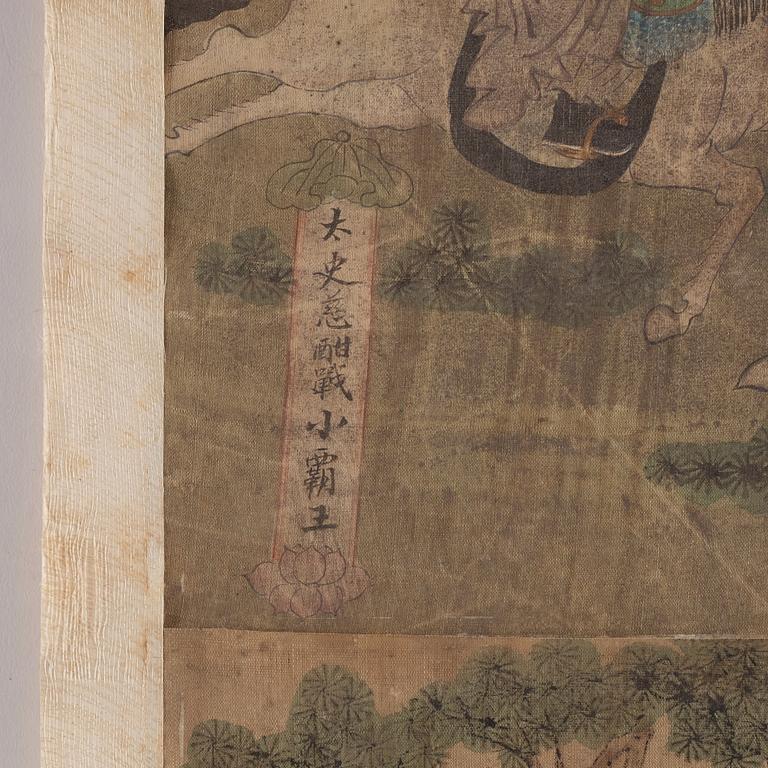 太史慈酣戰小霸王